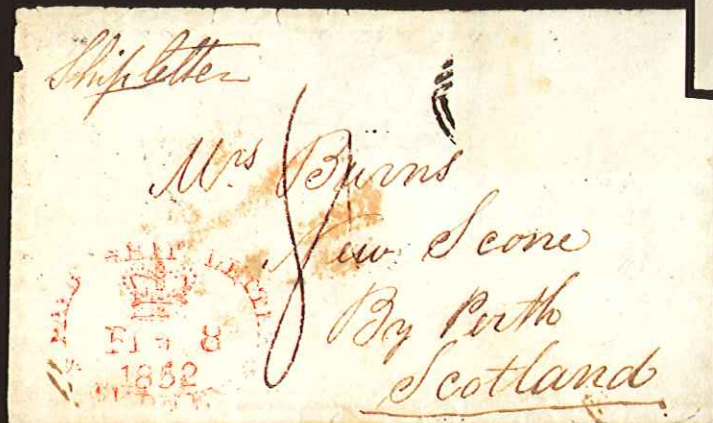 Ship letter
Mrs Burns
8
New Scone
By Perth
Scotland
PAID SHIP LETTER
8
1852
SYDNEY